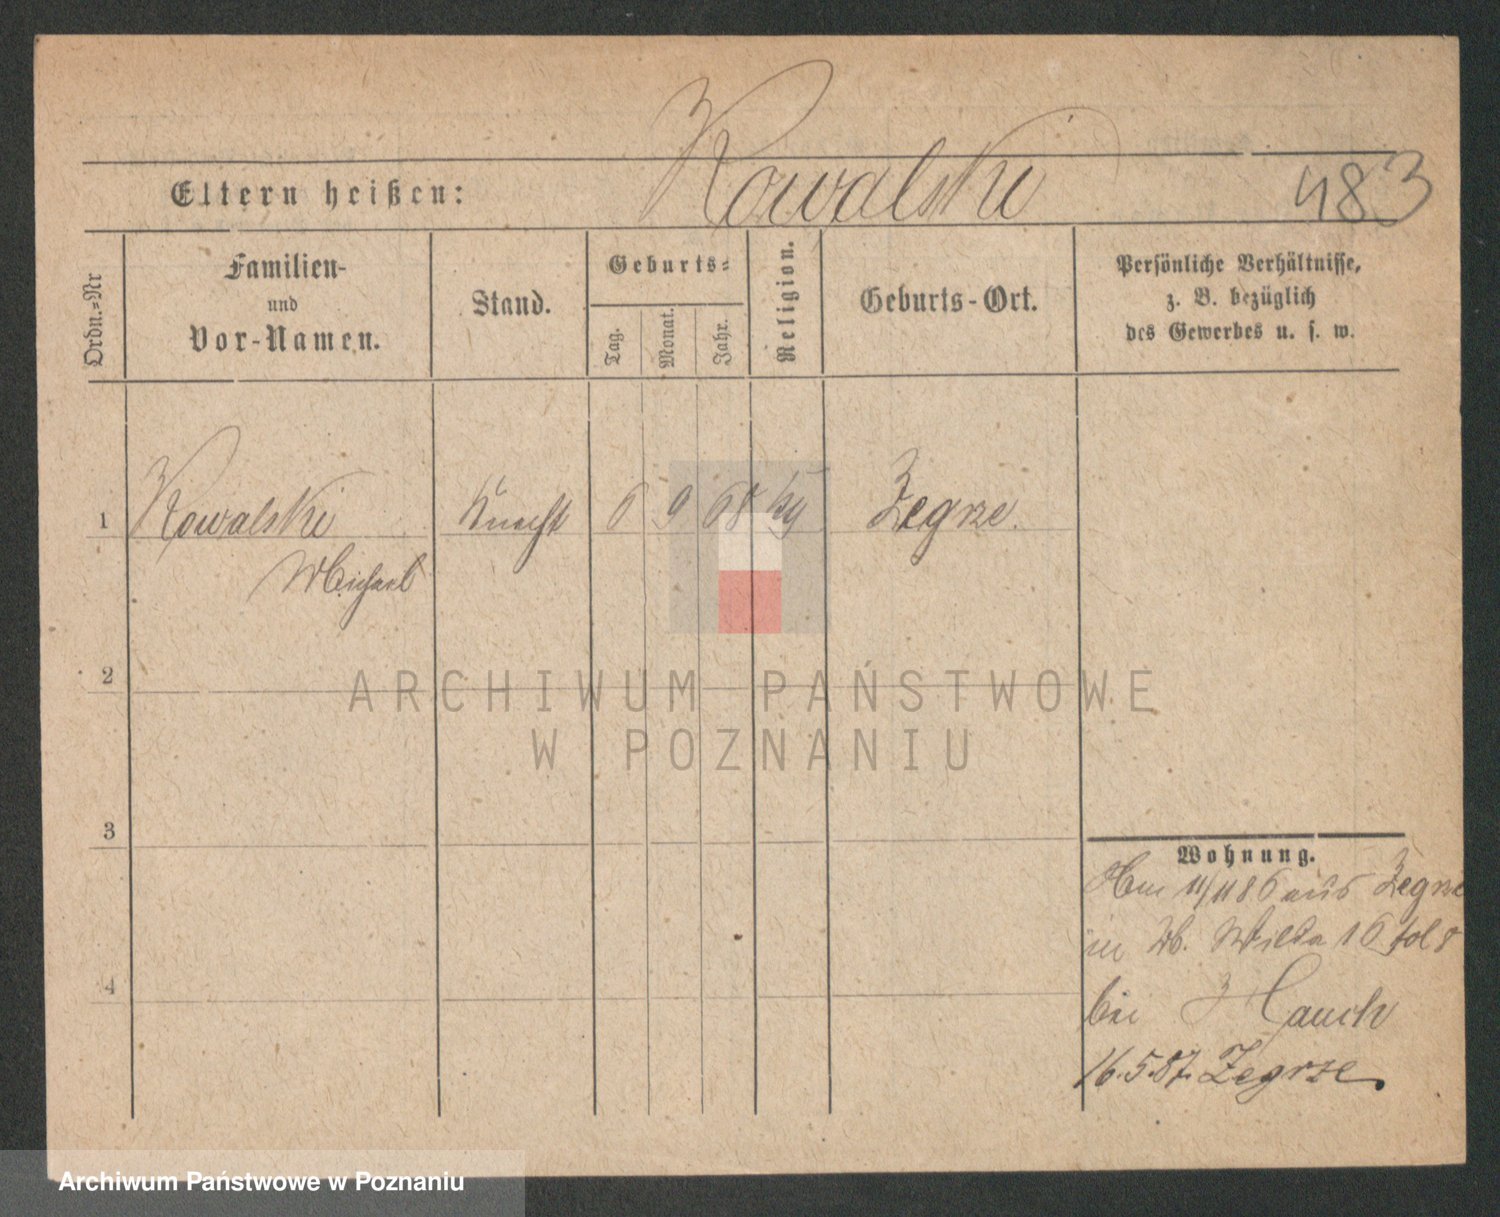 Kowalski
Eltern heißen:
483
Ordn.-Nr
Familien-
und
Vor-Namen.
Stand.
Geburts-
Tag.
Monat.
Jahr.
Religion.
Geburts-Ort.
Persönliche Verhältnisse,
z. B. bezüglich
des Gewerbes u. s. w.
1 Kowalski Knecht 6 9 68 Zegrze.
Michael
2
ARCHIWUM PAŃSTWOWE
W POZNANIU
3
Wohnung.
11/11 86 aus Zegrze
in Wilda 16
bei Hauch
4
16.5.87. Zegrze.
Archiwum Państwowe w Poznaniu